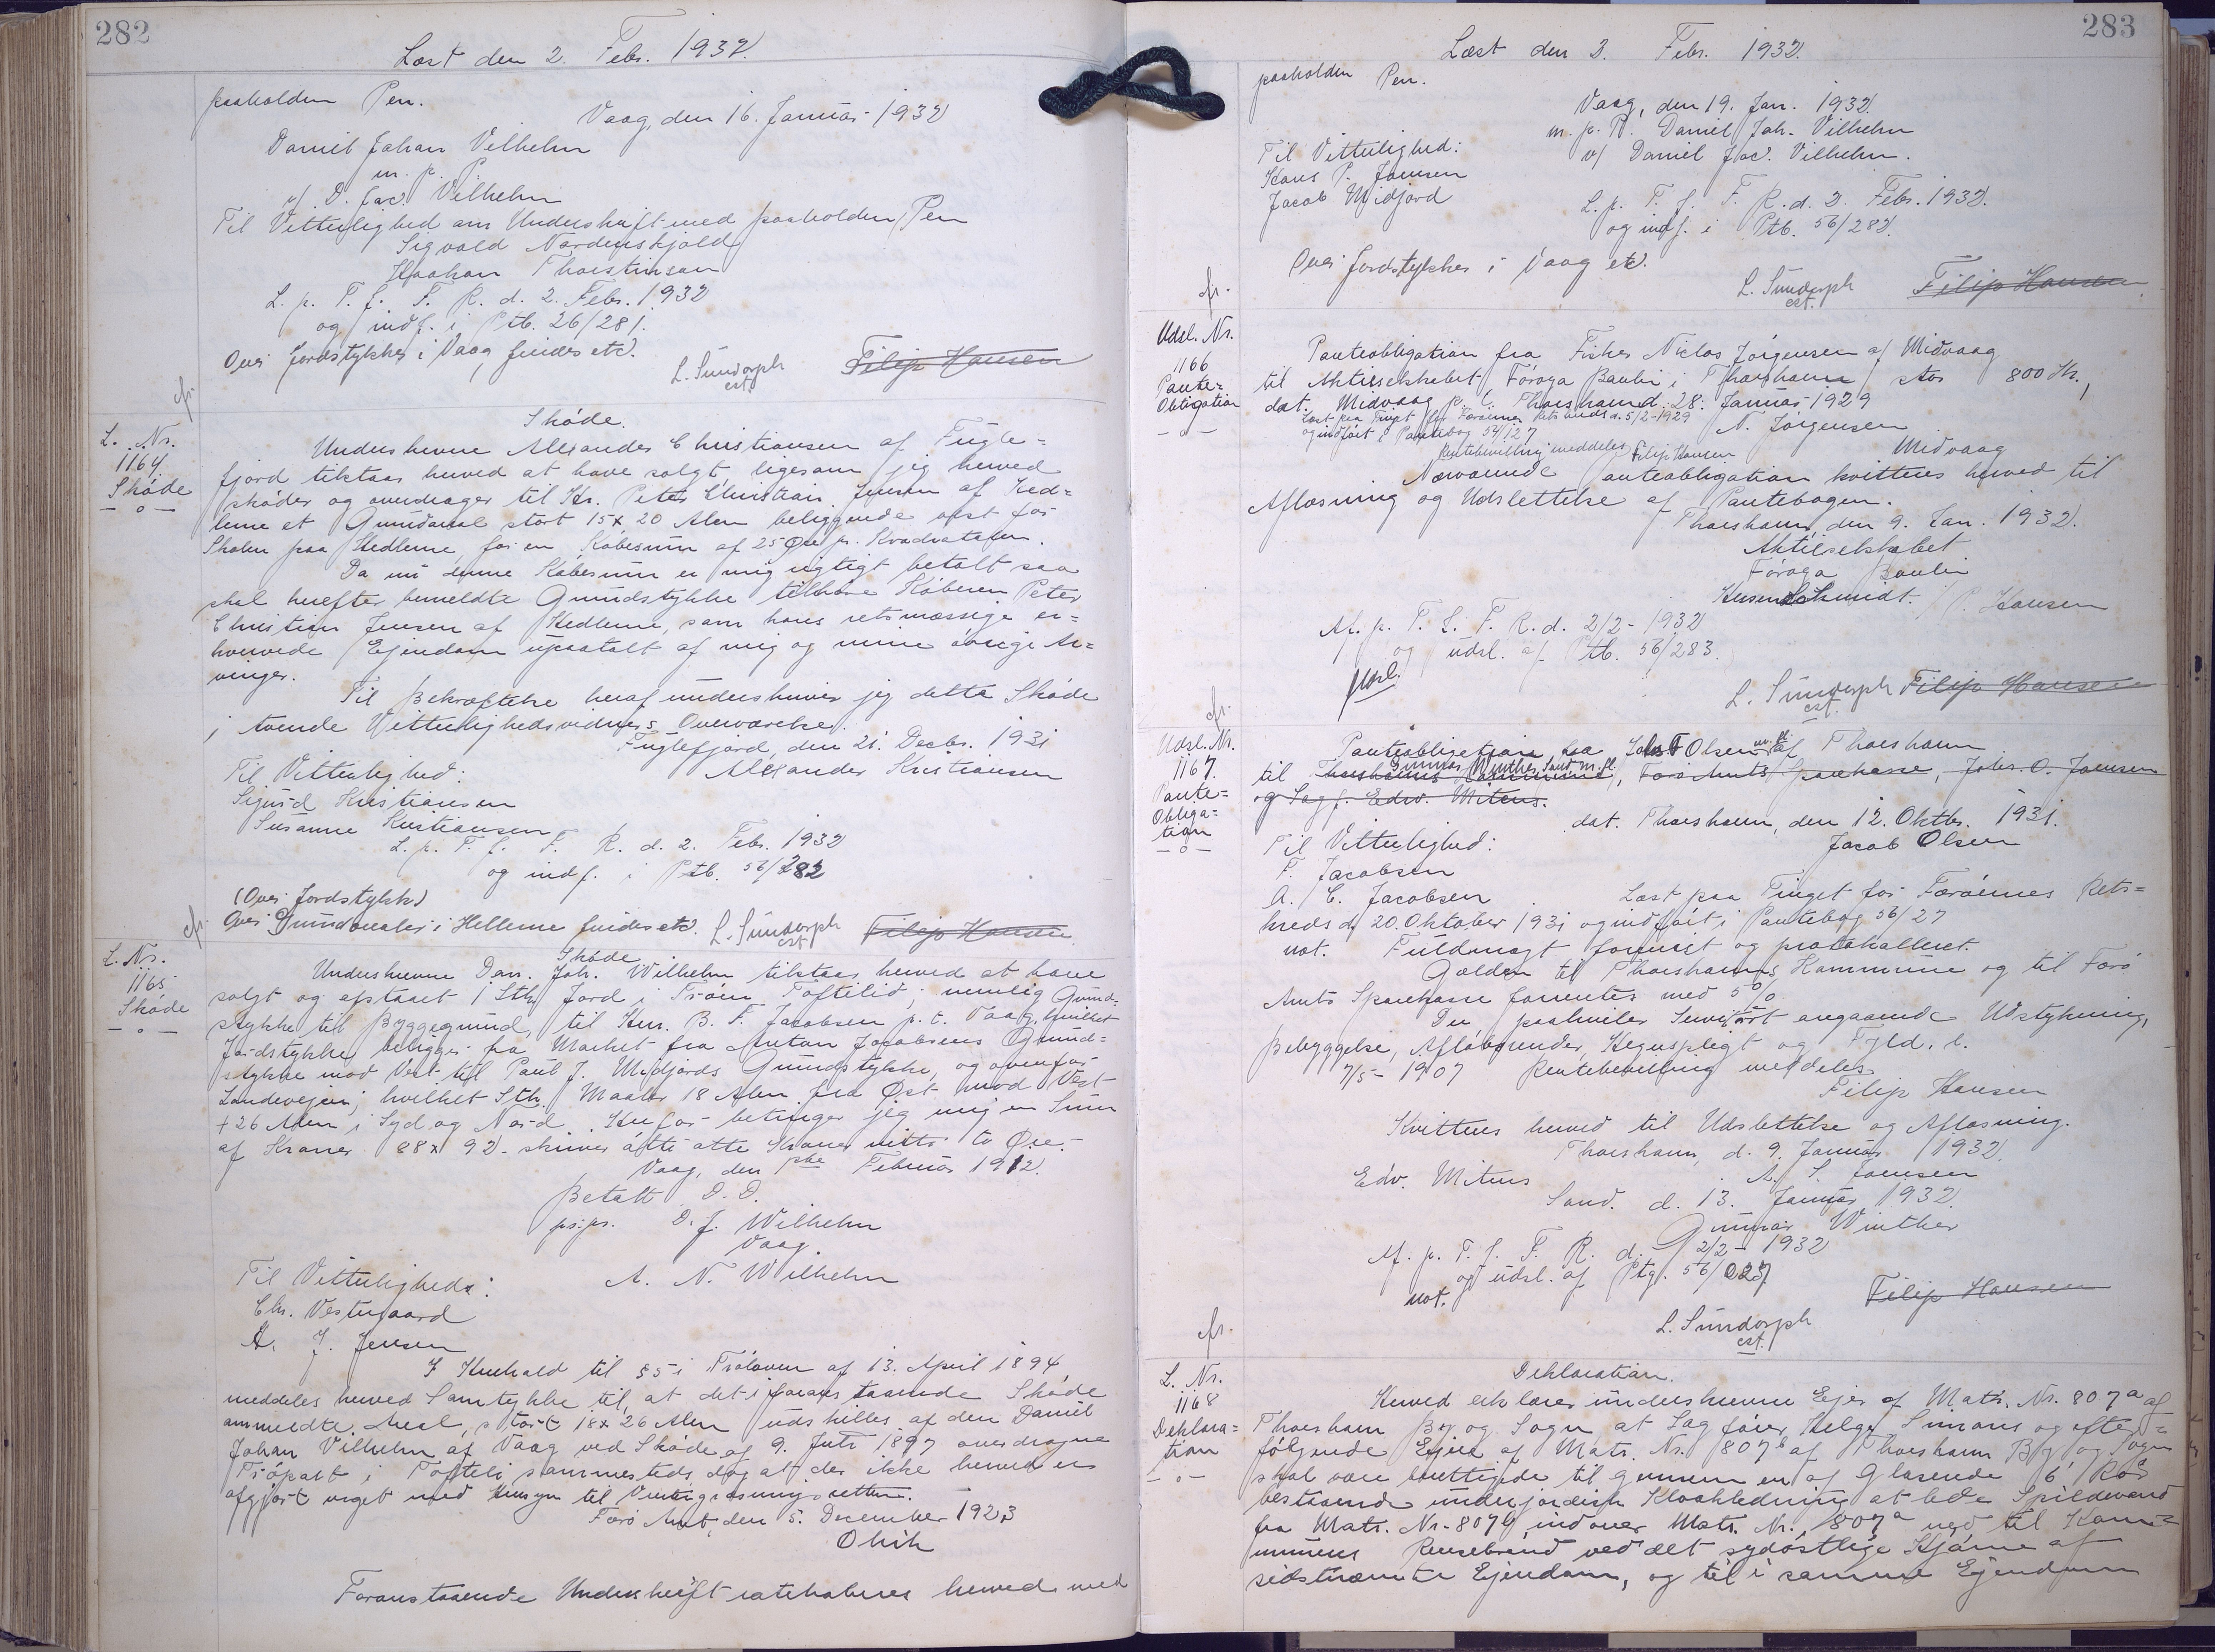 282
Læst den 2. Febr. 1932.
paaholden Pen.
Vaag, den 16. Januar 1932
Daniel Johan Vilhelm
m. p. P.
v/ D. Jac. Vilhelm
Til Vitterlighed om Underskrift med paaholden Pen
Sigvald Nordenskjold
Haakan Thorstinson
L. p. T. f. F. R. d. 2. Febr. 1932
og indf. i Ptb. 26/281.
Over Jordstykker i Vaag findes etc.
L. Sundorph
cst.
Filip Hansen
cfr.
L. Nr.
1164.
Skøde
Skøde.
Underskrevne Alexander Christiansen af Fugle=
fjord tilstaar herved at have solgt, ligesom jeg herved
skøder og overdrager til Hr. Peter Christian Jensen af Hed=
lerne et Grundareal stort 15 x 20 Alen beliggende vest for
Skolen paa Hedlerne, for en Købesum af 25 Øre pr. Kvadratalen.
Da nu denne Købesum er mig rigtigt betalt saa
skal herefter bemeldte Grundstykke tilhøre Køberen Peter
Christian Jensen af Hedlerne, som hans retsmæssige er=
hvervede Ejendom upaatalt af mig og mine øvrige Ar=
vinger.
Til Bekræftelse heraf underskriver jeg dette Skøde
i tvende Vitterlighedsvidners Overværelse.
Fuglefjord, den 21. Decbr. 1931
Til Vitterlighed:
Alexander Kristiansen
Sigurd Kristiansen
Susanne Kristiansen
L. p. T. f. F. R. d. 2. Febr. 1932
og indf. i Ptb. 56/282
(Over Jordstykk)
Over Grundarealer i Hellerne findes etc.
L. Sundorph
cst
Filip Hansen
cfr.
L. Nr.
1165
Skøde
Skøde.
Underskrevne Dan. Joh. Wilhelm tilstaar herved at have
solgt og afstaaet 1 Stk. Jord i Trøen Toftelid; nemlig Grund=
stykke til Byggegrund, til Hrr. B. F. Jacobsen p. t. Vaag, hvilket
Jordstykke beligger fra Market fra Anton Jacobsens Grund=
stykke mod Vest til Paul J. Midjords Grundstykke, og ovenfor
Landevejen; hvilket Stk. Maaler 18 Alen fra Øst mod Vest
+ 26 Alen i Syd og Nord. Herfor betinger jeg mig en Sum
af Kroner 88 x 92 - skriver åtte åtte Kroner nitti to Øre.-
Vaag, den 1ste Februar 1912.
Betalt D. D.
ps.ps. D. J. Wilhelm
Vaag.
Til Vitterligheds:
A. N. Wilhelm
Chr. Vestergaard
A. J. Jensen
I Henhold til § 5 i Trøloven af 13. April 1894,
meddeles herved Samtykke til, at det i foranstaaende Skøde
ommeldte Areal, stort 18 x 26 Alen udskilles af den Daniel
Johan Vilhelm af Vaag ved Skøde af 9. Juli 1897 overdragne
Trøpart i Tofteli sammesteds dog at der ikke herved er
afgjort noget med Hensyn til Vintergræsningsretten.
Færø Amt, den 5. December 1923
Ohik
Foranstaaende Underskrift ratihaberes herved med
283
Læst den 2. Febr. 1932.
paaholden Pen.
Vaag, den 19. Jan. 1932
m. p. P. Daniel Joh. Vilhelm
Til Vitterlighed:
v/ Daniel Jac. Vilhelm.
Hans P. Joensen
Jacob Midjord
L. p. T. f. F. R. d. 2. Febr. 1932.
og indf. i Ptb. 56/282.
Over Jordstykker i Vaag etc.
L. Sundorph
cst.
Filip Hansen
cfr.
Udsl. Nr.
1166
Pante=
Obligation
Panteobligation fra Fisker Niclas Jørgensen af Midvaag
til Aktieselskabet Føroya Banki i Thorshavn stor 800 Kr.,
dat. Midvaag p. t. Thorshavn d. 28. Januar 1929
Læst paa Tinget for Færøernes Retskreds d. 5/2-1929
og indført i Pantebog 54/127
N. Jørgensen
Midvaag
Rentebevilling meddeles Filip Hansen
Nærværende Panteobligation kvitteres herved til
Aflæsning og Udslettelse af Pantebogen.
Thorshavn, den 9. Jan. 1932.
Aktieselskabet
Føroya Banki
Schmidt. / P. Hansen
Af. p. T. f. F. R. d. 2/2 - 1932
og udsl. af Ptb. 56/283.
L. Sundorph
cst.
Filip Hansen
cfr.
Udsl. Nr.
1167.
Pante=
Obliga=
tion
Panteobligation fra Jacob Olsen af Thorshavn
Gunnar Winther, Sand m. fl.
til Thorshavns Kommune, Færø Amts Sparekasse, Johs. O. Joensen
og Sagf. Edw. Mitens.
dat. Thorshavn, den 12. Oktbr. 1931.
Til Vitterlighed:
Jacob Olsen
F. Jacobsen
A. C. Jacobsen
Læst paa Tinget for Færøernes Rets=
kreds d. 20. Oktober 1931 og indført i Pantebog 56/27
not. Fuldmagt forevist og protokolleret.
Gælden til Thorshavns Kommune og til Færø
Amts Sparekasse forrentes med 5 %.
Der paahviler Servitut angaaende Udstykning,
Bebyggelse, Afløbsrender, Hegnspligt og Fyld. t.
7/5 - 1907 Rentebevilling meddeles
Filip Hansen
Kvitteres herved til Udslettelse og Aflæsning.
Thorshavn, d. 9. Januar 1932.
Edv. Mitens
A. S. Joensen
Sand. d. 13. Januar 1932
Gunnar Winther
Af. p. T. f. F. R. d. 2/2 - 1932
og udsl. af Ptg. 56/027
not.
Filip Hansen
L. Sundorph
cst.
cfr.
L. Nr.
1168
Deklara=
tion
Deklaration.
Herved erklærer underskrevne Ejer af Matr. Nr. 807a af
Thorshavn By og Sogn at Sagfører Helge Simonis og efter=
følgende Ejere af Matr. Nr. 807b af Thorshavn By og Sogn
skal være berettigede til gennem en af Glaserede 6" Rør
bestaaende underjordisk Kloakledning at lede Spildevand
fra Matr. Nr. 807b ind over Matr. Nr. 807a ned til Kom=
munens Rensebrønd ved det sydøstlige Hjørne af
sidstnævnte Ejendom, og til i samme Ejendom